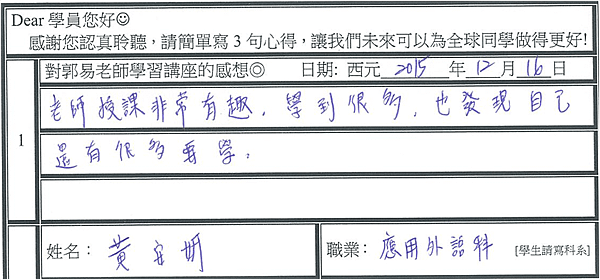 Dear 學員您好☺
感謝您認真聆聽，請簡單寫 3 句心得，讓我們未來可以為全球同學做得更好!
對郭易老師學習講座的感想◎ 日期: 西元 2015 年 12 月 16 日
1
老師授課非常有趣，學到很多，也發現自己
還有很多要學。
姓名： 黃安妍 職業： 應用外語科 [學生請寫科系]